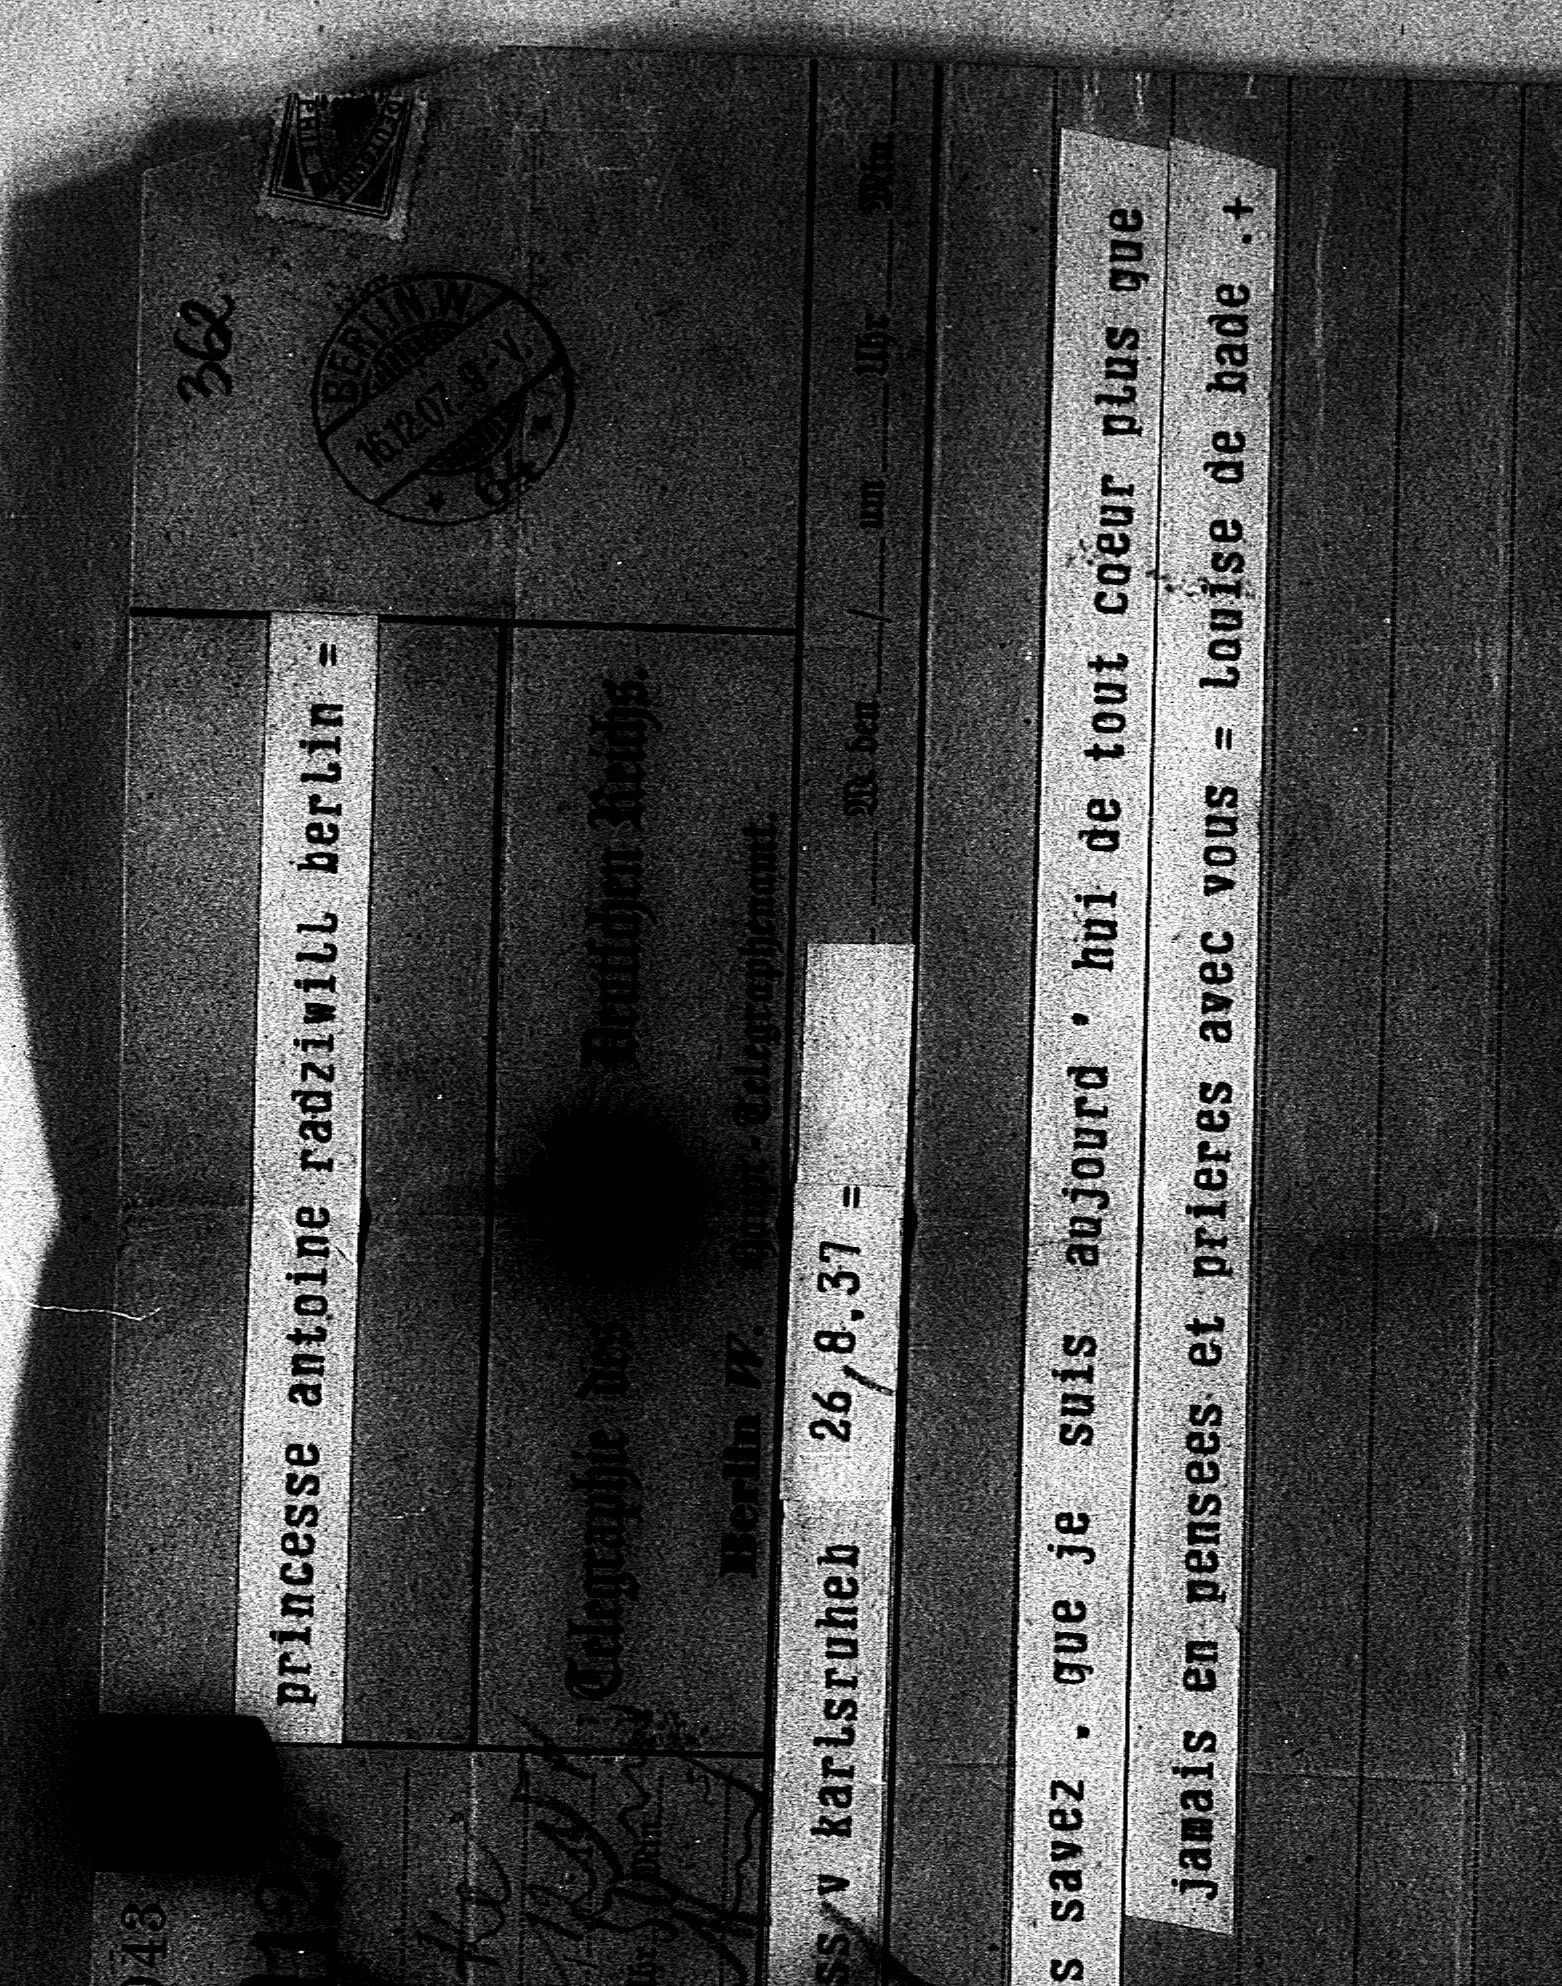 princesse antoine radziwill berlin =
362
BERLIN.W
16.12.07. 8-V.
64
Telegraphie des Deutschen Reichs.
Berlin W. Haupt-Telegraphenamt.
043
12
Uhr Min
ss/v karlsruheh 26/8.37 =
M. den / um Uhr Min.
s savez . que je suis aujourd ' hui de tout coeur plus que
jamais en pensees et prieres avec vous = Louise de bade .+